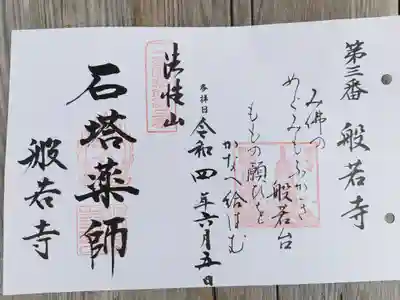 第三番 般若寺
み佛の
めぐみもふかき
般若台
もゝの願ひを
かなへ給はむ
参拝日 令和四年六月五日
法性山
石塔薬師
般若寺